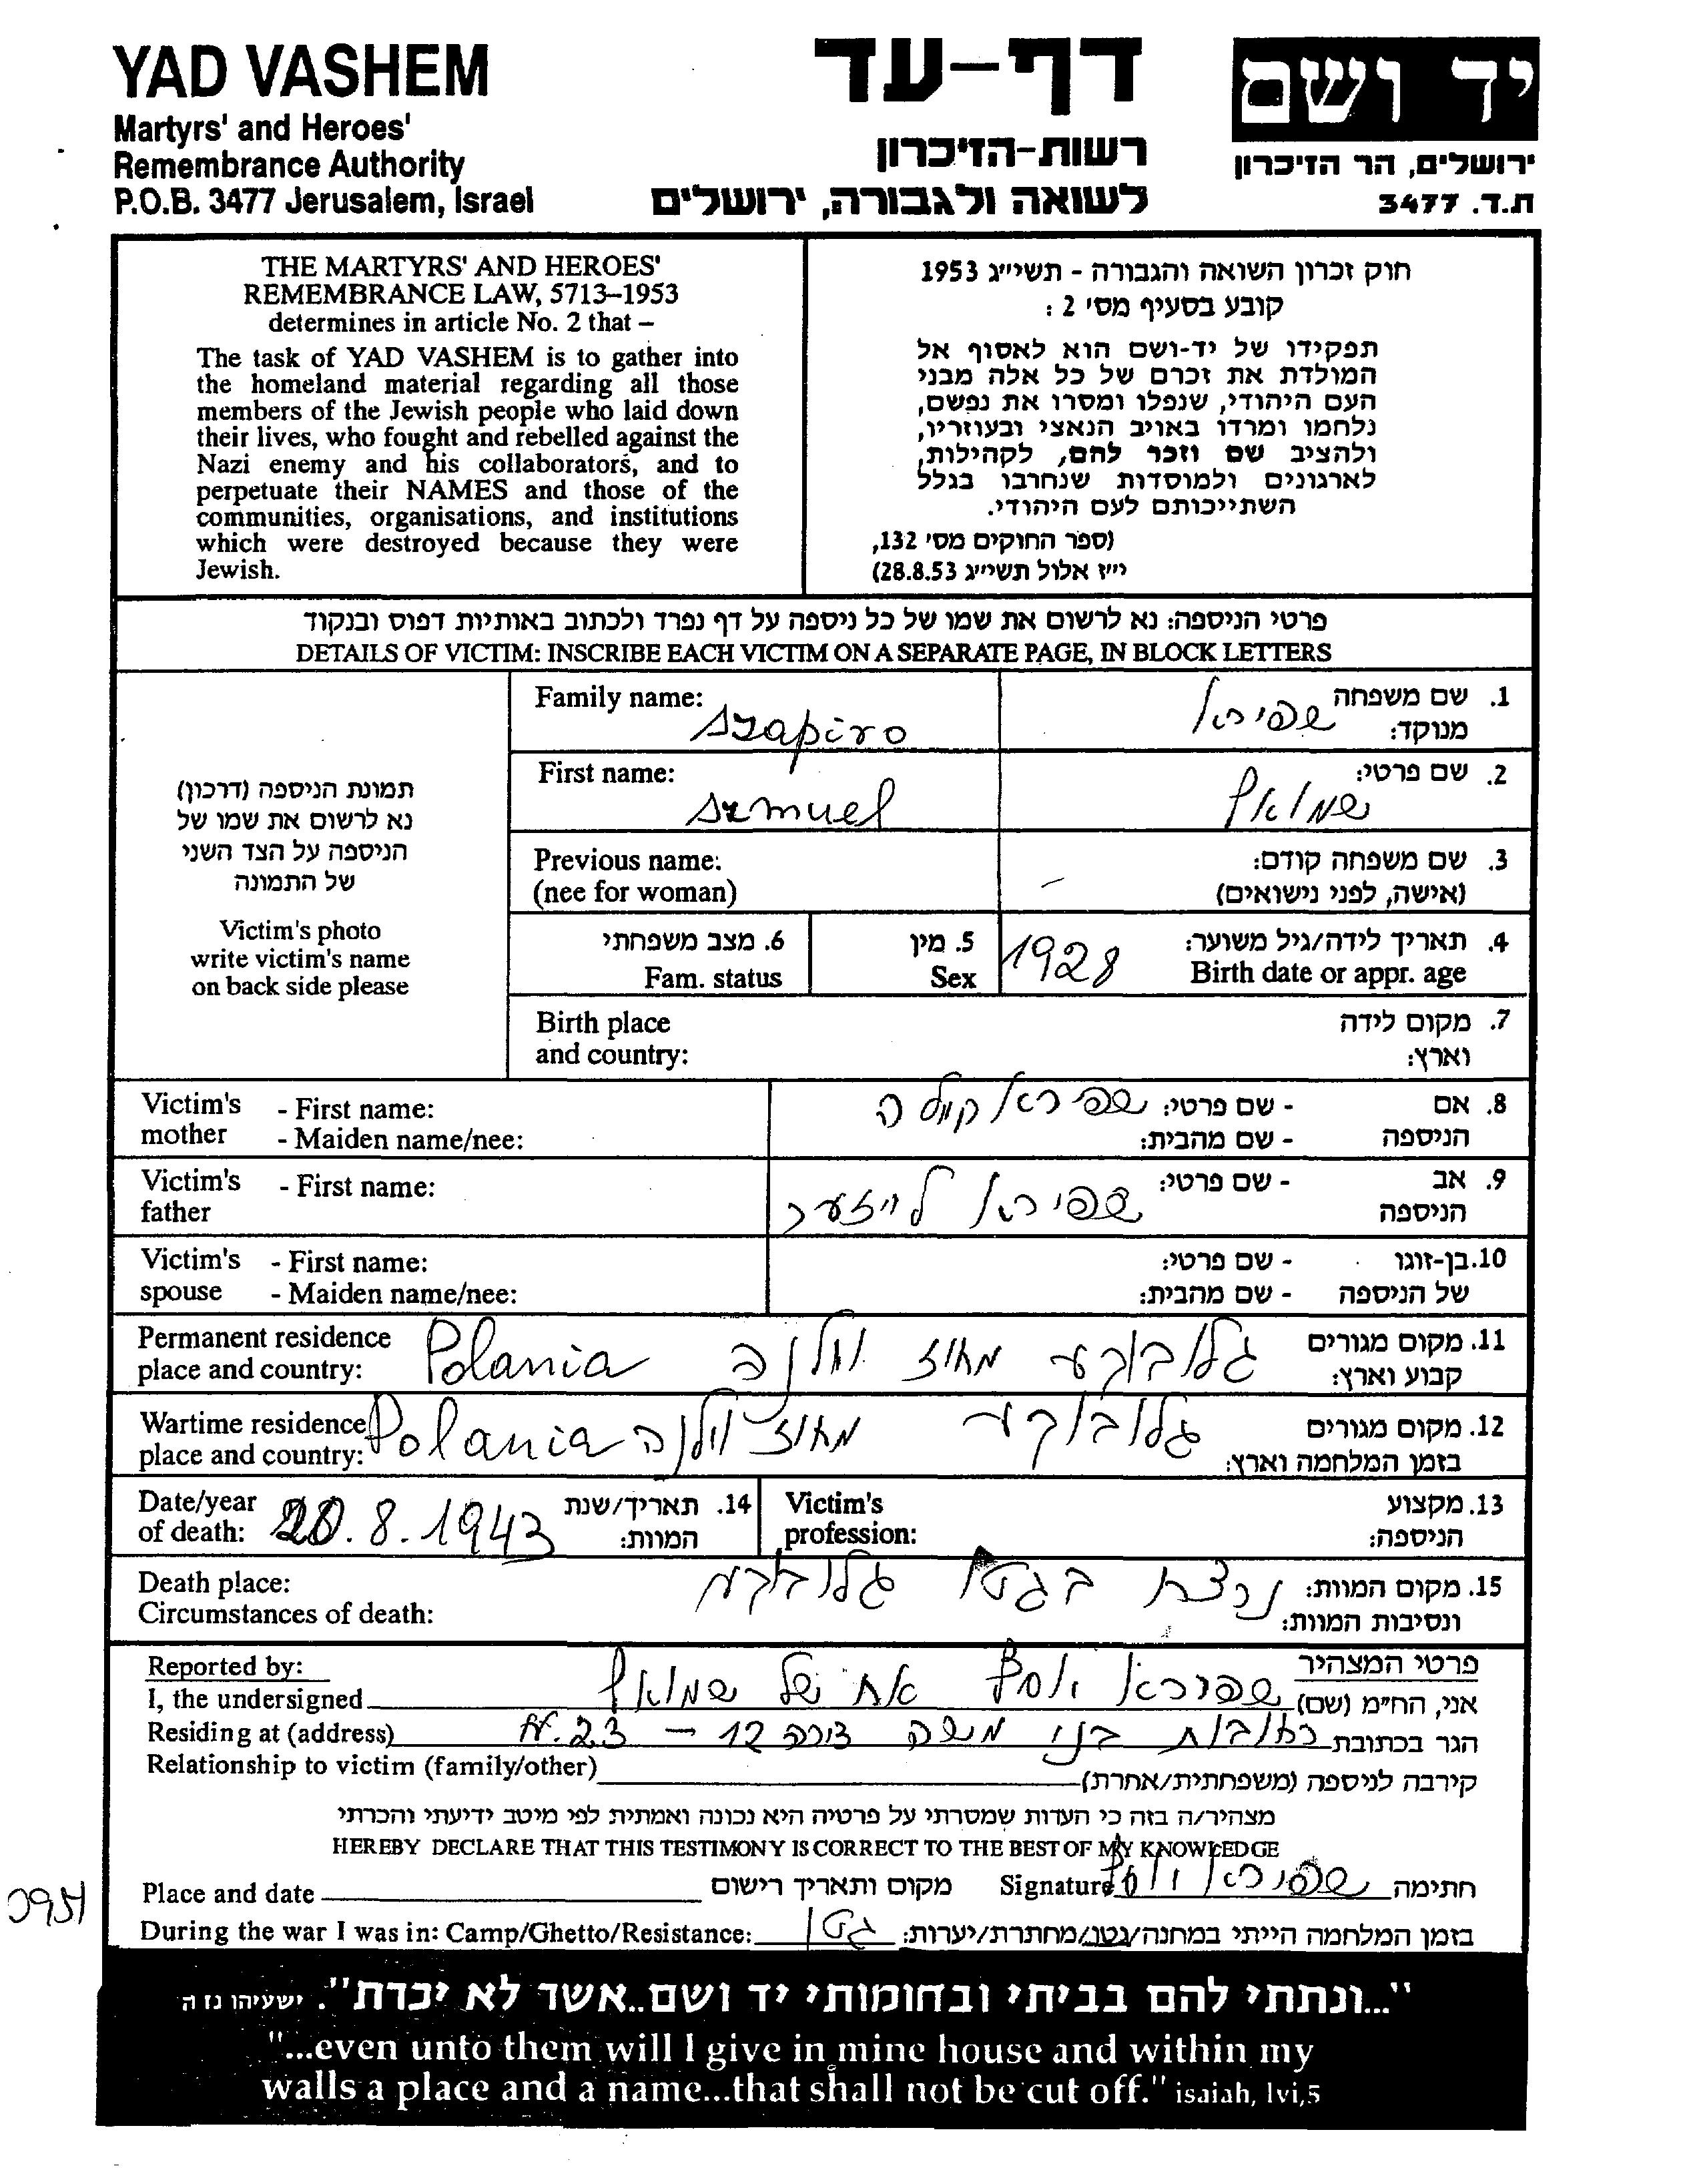 YAD VASHEM
Martyrs' and Heroes'
Remembrance Authority
P.O.B. 3477 Jerusalem, Israel
דף-עד
רשות-הזיכרון
לשואה ולגבורה, ירושלים
יד ושם
ירושלים, הר הזיכרון
ת.ד. 3477
THE MARTYRS' AND HEROES'
REMEMBRANCE LAW, 5713–1953
determines in article No. 2 that –
The task of YAD VASHEM is to gather into
the homeland material regarding all those
members of the Jewish people who laid down
their lives, who fought and rebelled against the
Nazi enemy and his collaborators, and to
perpetuate their NAMES and those of the
communities, organisations, and institutions
which were destroyed because they were
Jewish.
חוק זכרון השואה והגבורה - תשי״ג 1953
קובע בסעיף מס׳ 2 :
תפקידו של יד-ושם הוא לאסוף אל
המולדת את זכרם של כל אלה מבני
העם היהודי, שנפלו ומסרו את נפשם,
נלחמו ומרדו באויב הנאצי ובעוזריו,
ולהציב שם וזכר להם, לקהילות,
לארגונים ולמוסדות שנחרבו בגלל
השתייכותם לעם היהודי.
(ספר החוקים מס׳ 132,
י״ז אלול תשי״ג 28.8.53)
פרטי הניספה: נא לרשום את שמו של כל ניספה על דף נפרד ולכתוב באותיות דפוס ובנקוד
DETAILS OF VICTIM: INSCRIBE EACH VICTIM ON A SEPARATE PAGE, IN BLOCK LETTERS
תמונת הניספה (דרכון)
נא לרשום את שמו של
הניספה על הצד השני
של התמונה
Victim's photo
write victim's name
on back side please
Family name: Szapiro
1. שם משפחה מנוקד: שפירא
First name: Szmuel
2. שם פרטי: שמואל
Previous name:
(nee for woman)
–
3. שם משפחה קודם:
(אישה, לפני נישואים)
6. מצב משפחתי
Fam. status
5. מין
Sex
4. תאריך לידה/גיל משוער:
Birth date or appr. age
1928
Birth place
and country:
7. מקום לידה
וארץ:
Victim's mother - First name:
- Maiden name/nee:
8. אם הניספה - שם פרטי: שפירא
- שם מהבית:
Victim's father - First name:
9. אב הניספה - שם פרטי: שפירא לייזער
Victim's spouse - First name:
- Maiden name/nee:
10. בן-זוגו של הניספה - שם פרטי:
- שם מהבית:
Permanent residence
place and country:
11. מקום מגורים
קבוע וארץ:
גלובוקע מחוז וילנה Polania
Wartime residence
place and country:
12. מקום מגורים
בזמן המלחמה וארץ:
גלובוקע מחוז וילנה Polania
Date/year
of death: 20.8.1943
14. תאריך/שנת
המוות:
Victim's
profession:
13. מקצוע
הניספה:
Death place:
Circumstances of death:
15. מקום המוות:
ונסיבות המוות:
נרצח בגטו גלובוקע
Reported by:
פרטי המצהיר
I, the undersigned
אני, הח״מ (שם) שפירא יוסף אח של שמואל
Residing at (address)
הגר בכתובת רחובות בני משה 12 – N.23
Relationship to victim (family/other)
קירבה לניספה (משפחתית/אחרת)
מצהיר/ה בזה כי העדות שמסרתי על פרטיה היא נכונה ואמתית לפי מיטב ידיעתי והכרתי
HEREBY DECLARE THAT THIS TESTIMONY IS CORRECT TO THE BEST OF MY KNOWLEDGE
Place and date
מקום ותאריך רישום
Signature
חתימה שפירא יוסף
During the war I was in: Camp/Ghetto/Resistance:
בזמן המלחמה הייתי במחנה/גטו/מחתרת/יערות: גטו
"...ונתתי להם בביתי ובחומותי יד ושם..אשר לא יכרת". ישעיהו נז ה
"...even unto them will I give in mine house and within my
walls a place and a name...that shall not be cut off." isaiah, lvi,5